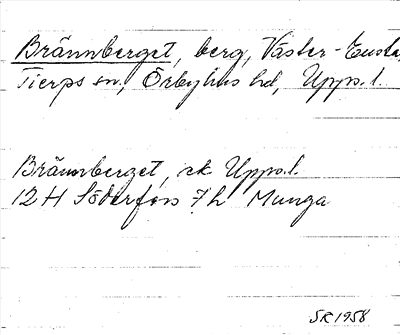 Brännberget, berg, Väster-Ensta,
Tierps sn, Örbyhus hd, Upps. l.
Brännberget, ek Upps. l.
12 H Söderfors 7 h Munga
SR 1958